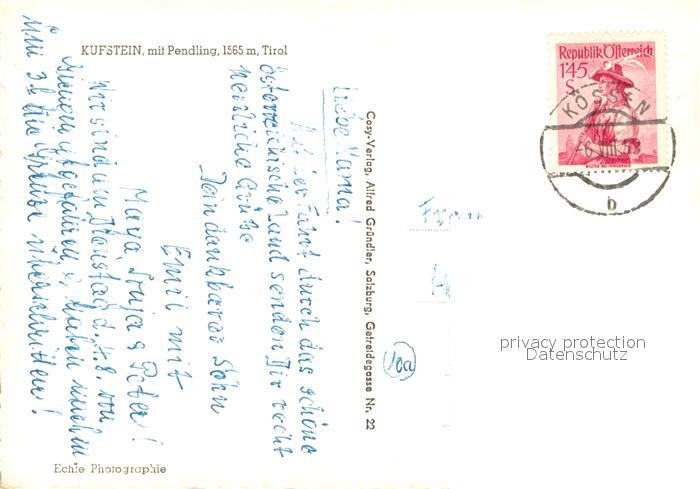 KUFSTEIN, mit Pendling, 1565 m, Tirol
Liebe Mama!
Auf der Fahrt durch das schöne
österreichische Land senden Dir recht
herzliche Grüße
Dein dankbarer Sohn
Emil mit
Maya, Sonja & Peter!
Wir sind am Dienstag d. 4.8. von
gefahren & haben
um 3 h die Grenze überschritten!
Echte Photographie
Cosy-Verlag, Alfred Gründler, Salzburg, Getreidegasse Nr. 22
Republik Österreich
1'45
S
KÖSSEN
b
10a
privacy protection
Datenschutz